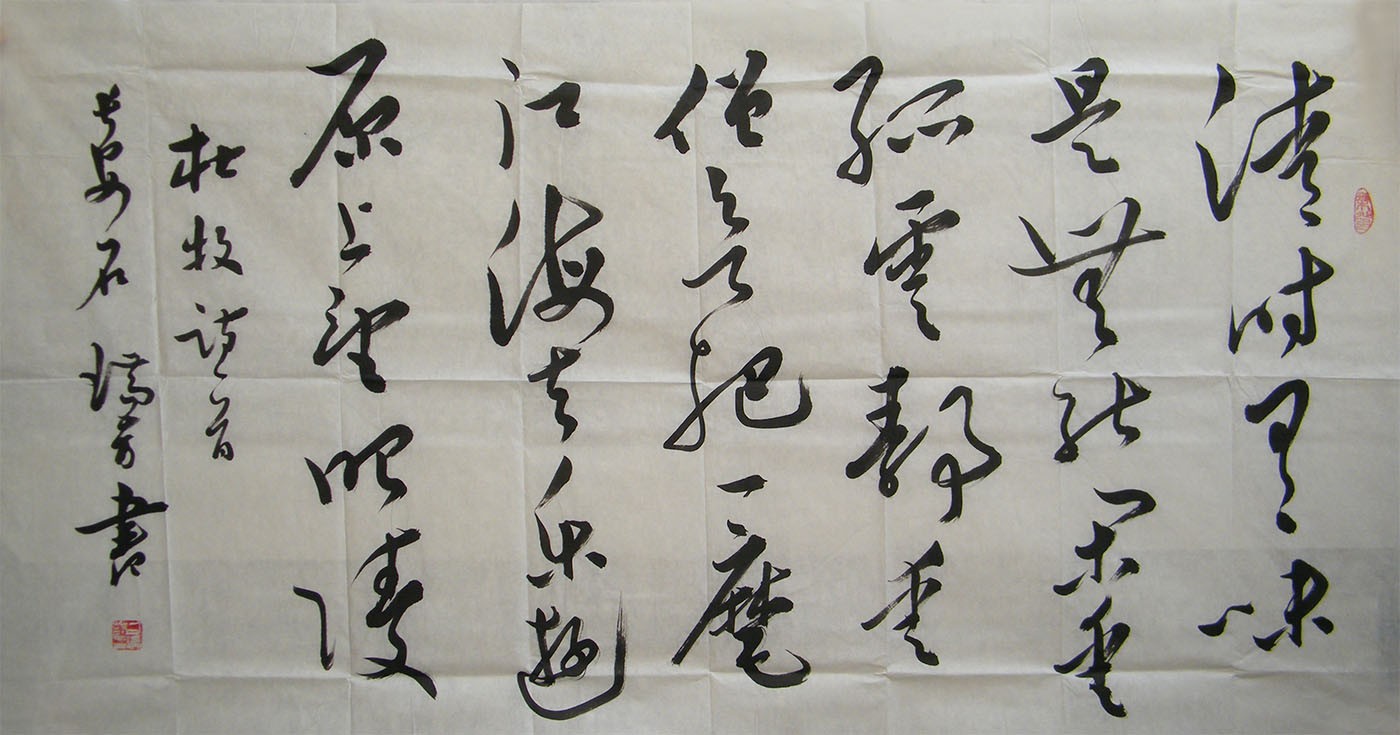 清時有味
是無能閑愛
孤雲靜愛
僧欲把一麾
江海去樂遊
原上望昭陵
杜牧詩一首
長安石瑞芳書